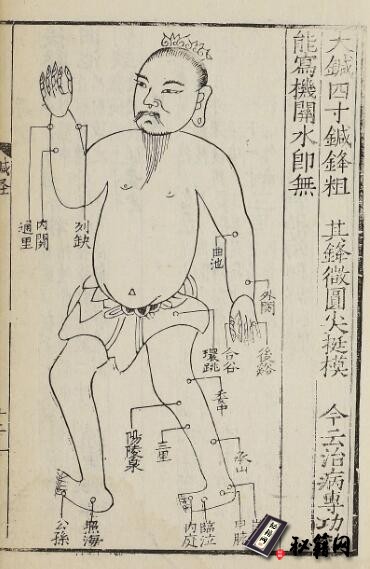 大鍼四寸鍼鋒粗　其鋒微圓尖挺模　今云治病專功
能寫機關水即無
鍼經
通里
內關
列缺
曲池
外關
後谿
合谷
環跳
委中
三里
陽陵泉
承山
申脈
臨泣
內庭
照海
公孫
秘籍网